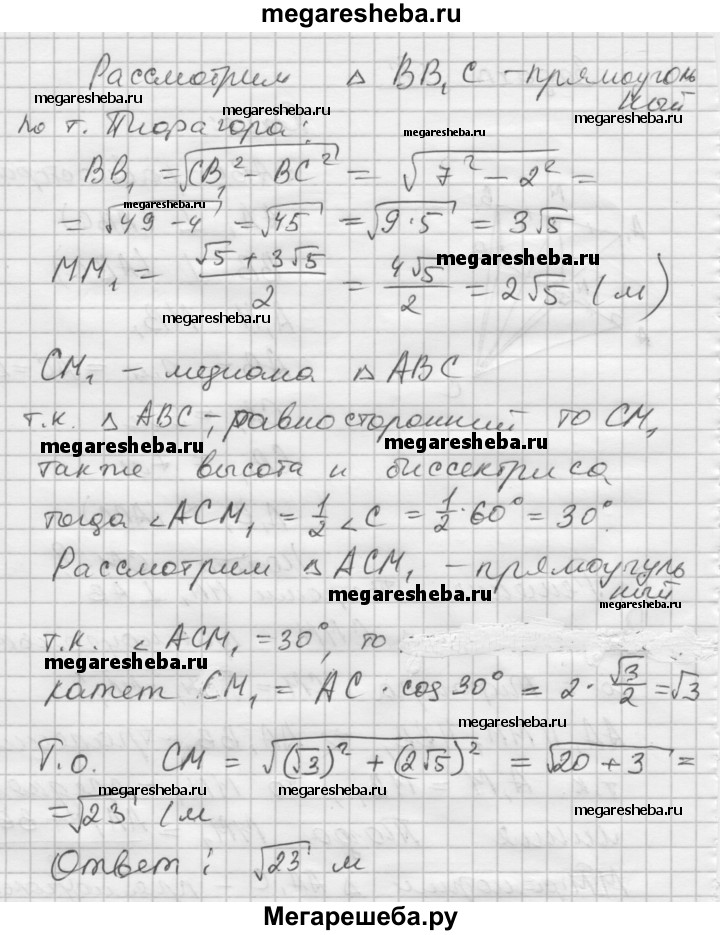 megaresheba.ru
Рассмотрим △ BB₁C – прямоуголь
ный
megaresheba.ru megaresheba.ru megaresheba.ru megaresheba.ru
по т. Пифагора:
BB₁ = √(CB₁² - BC²) = √(7² - 2²) =
megaresheba.ru
= √(49 - 4) = √45 = √(9·5) = 3√5
MM₁ = (√5 + 3√5)/2 = 4√5/2 = 2√5 (м)
megaresheba.ru
megaresheba.ru
CM₁ – медиана △ ABC
т.к. △ ABC – равносторонний то CM₁
megaresheba.ru megaresheba.ru
также высота и биссектриса
тогда ∠ACM₁ = 1/2 ∠C = 1/2 · 60° = 30°.
Рассмотрим △ ACM₁ – прямоуголь
ный
megaresheba.ru megaresheba.ru
т.к. ∠ ACM₁ = 30°, то
megaresheba.ru
катет CM₁ = AC · cos 30° = 2 · √3/2 = √3
megaresheba.ru
Т.о. CM = √((√3)² + (2√5)²) = √(20 + 3) =
megaresheba.ru megaresheba.ru megaresheba.ru
= √23 (м
Ответ: √23 м
Мегарешеба.ру